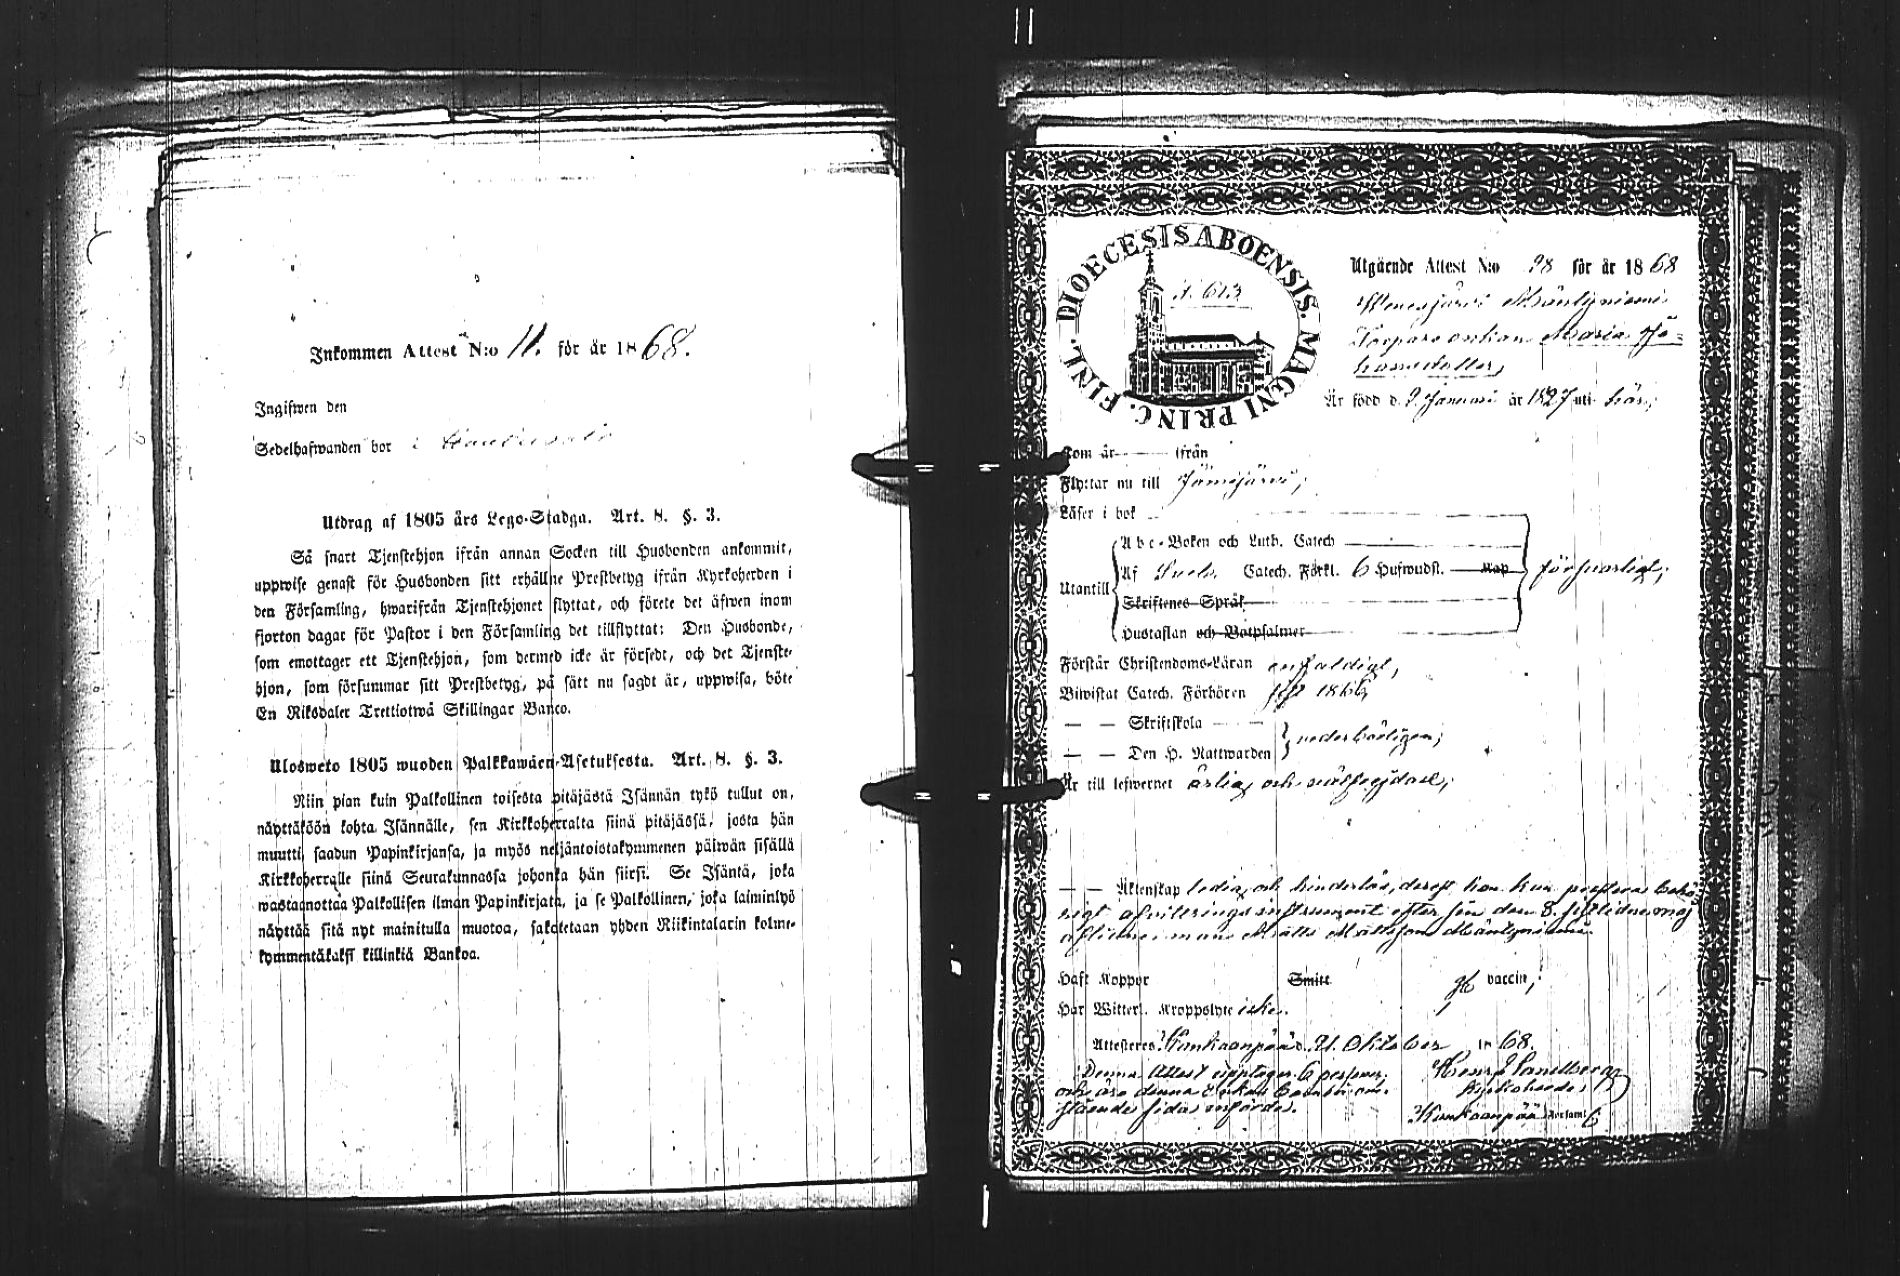 Inkommen Attest N:o 11. för år 1868.
Ingifwen den
Sedelhafwanden bor i
Utdrag af 1805 års Lego-Stadga. Art. 8. §. 3.
Så snart Tjenstehjon ifrån annan Socken till Husbonden ankommit,
uppwise genast för Husbonden sitt erhållne Prestbetyg ifrån Kyrkoherden i
den Församling, hwarifrån Tjenstehjonet flyttat, och förete det äfwen inom
fjorton dagar för Pastor i den Församling det tillflyttat: Den Husbonde,
som emottager ett Tjenstehjon, som dermed icke är försedt, och det Tjenste-
hjon, som försummar sitt Prestbetyg, på sätt nu sagdt är, uppwisa, böte
En Riksdaler Trettiotwå Skillingar Banco.
Ulosweto 1805 wuoden Palkkawäen-Asetuksesta. Art. 8. §. 3.
Niin pian kuin Palkollinen toisesta pitäjästä Isännän tykö tullut on,
näyttäköön kohta Isännälle, sen Kirkkoherralta siinä pitäjässä, josta hän
muutti, saadun Papinkirjansa, ja myös neljäntoistakymmenen päiwän sisällä
Kirkkoherralle siinä Seurakunnassa johonka hän siirsi. Se Isäntä, joka
wastaanottaa Palkollisen ilman Papinkirjata, ja se Palkollinen, joka laiminlyö
näyttää sitä nyt mainitulla muotoa, sakotetaan yhden Riikintalarin kolme-
kymmentäkaksi killinkiä Bankoa.
DIOECESIS ABOENSIS. MAGNI PRINC. FINL.
s. 613
Utgående Attest N:o 98 för år 1868
Wenesjärvi Mäntyniemi
Torpare enkan Maria Jo-
hansdotter,
Är född d. 9 Januari år 1827 uti här;
Kom år ifrån
Flyttar nu till Jämijärvi;
Läser i bok
Utantill
Abc-Boken och Luth. Catech
Af Sveb. Catech. Förkl. 6 Hufwudst. Kap
Skriftenes Språk
Hustaflan och Botpsalmer
försvarligt;
Förstår Christendoms-Läran enfaldigt,
Biwistat Catech. Förhören 1866,
— — Skriftskola
— — Den H. Nattwarden
vederbörligen;
Är till lefwernet ärlig och wälfrejdad;
— — Äktenskap ledig och hinderlös, derest hon kan prestera behö-
rigt afvittrings instrument efter sin den 8. sistlidne maj
aflidne man Matts Mattsson Mäntyniemi.
Haft Koppor Smitt vaccin;
Har Witterl. Kroppslyte icke.
Attesteras, Kankaanpää d. 21. Oktober 1868.
Denna Attest upptager 6 personer
och äro denna Enkas barn å om-
stående sida införda.
Sandberg
Kyrkoherde i
Kankaanpää Församl.